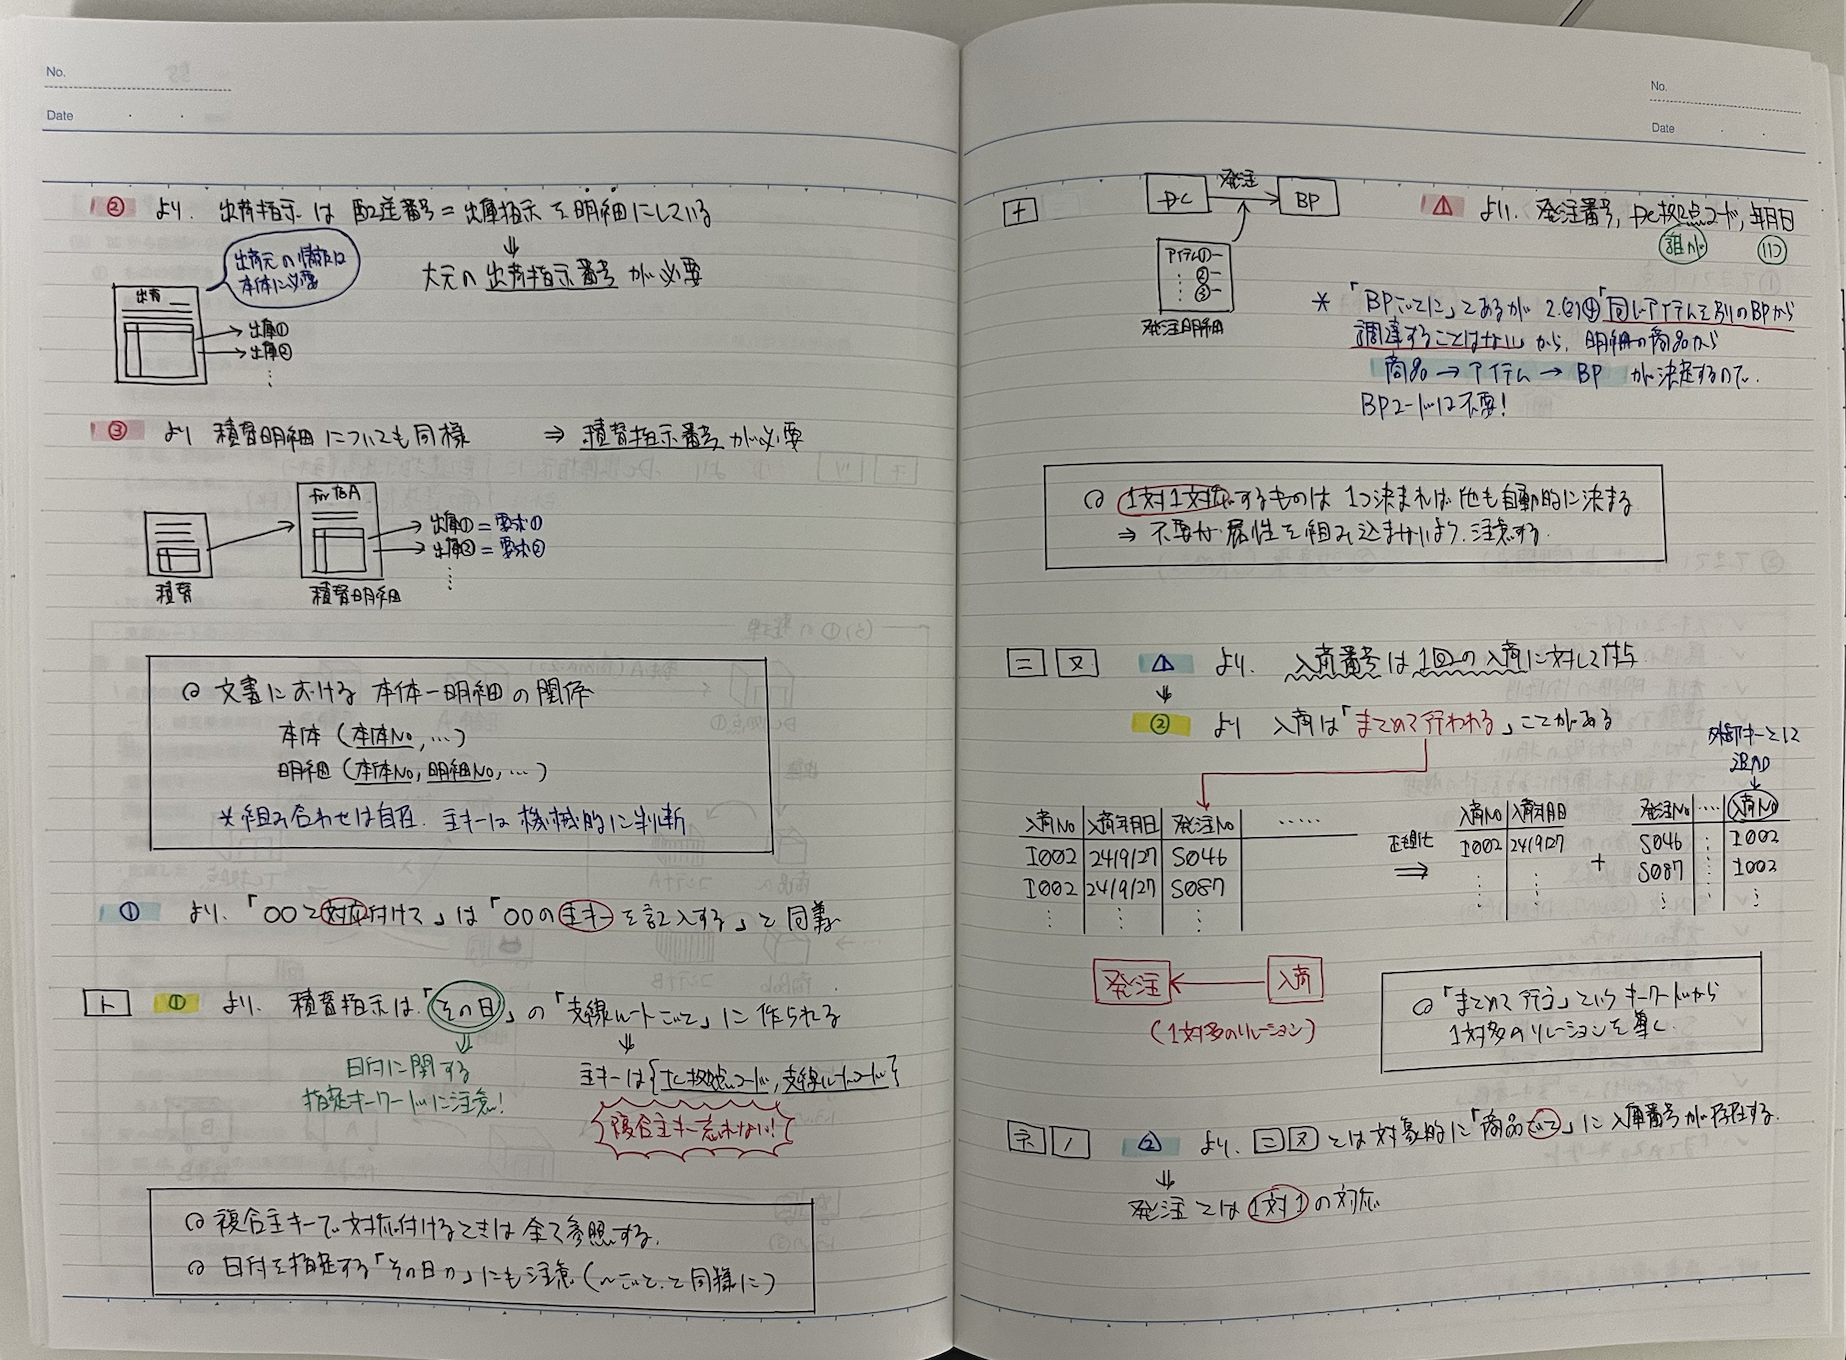 No.
Date
② より、出荷指示は配送番号=出庫指示を明細にしている
大元の出荷指示番号が必要
出荷元の情報は
本体に必要
出荷
→出庫①
→出庫②
③ より 積替明細についても同様 ⇒ 積替指示番号が必要
for TBA
出庫① = 要求①
出庫② = 要求②
積替
積替明細
○ 文書における 本体ー明細の関係
本体(本体No, …)
明細(本体No, 明細No, …)
*組み合わせは自在. 主キーは機械的に判断
① より、「○○と対応付けて」は「○○の主キーを記入する」と同義
ト ① より、積替指示は「その日」の「支線ルートごと」に作られる
日付に関する
指定キーワードに注意!
主キーは{TC拠点コード, 支線ルートコード}
複合主キー忘れない!
○ 複合主キーで対応付けるときは全て参照する.
○ 日付を指定する「その日の」にも注意(〜ごと、と同様に)
No.
Date
ナ
DC 発注 → BP
アイテム①ー
②ー
③ー
発注明細
⚠ より、発注番号, DC拠点コード, 年月日
誰が いつ
*「BPごとに」とあるが 2.(2)④「同じアイテムを別のBPから
調達することはない」から、明細の商品から
商品→アイテム→BP が決定するので、
BPコードは不要!
○ 1対1対応するものは 1つ決まれば他も自動的に決まる
⇒ 不要な属性を組み込まないよう、注意する.
ニ ヌ より、入荷番号は1回の入荷に対して付与
② より 入荷は「まとめて行われる」ことがある
外部キーとして
入荷No 入荷年月日 発注No ‥‥‥
I002 24/9/27 S046
I002 24/9/27 S087
正規化
⇒
入荷No 入荷年月日
I002 24/9/27
+
発注No ‥‥ 入荷No
S046 I002
S087 I002
発注 ← 入荷
(1対多のリレーション)
○「まとめて行う」というキーワードから
1対多のリレーションを導く.
ネ ノ より、ニヌとは対象的に「商品ごと」に入庫番号が存在する.
発注とは 1対1 の対応